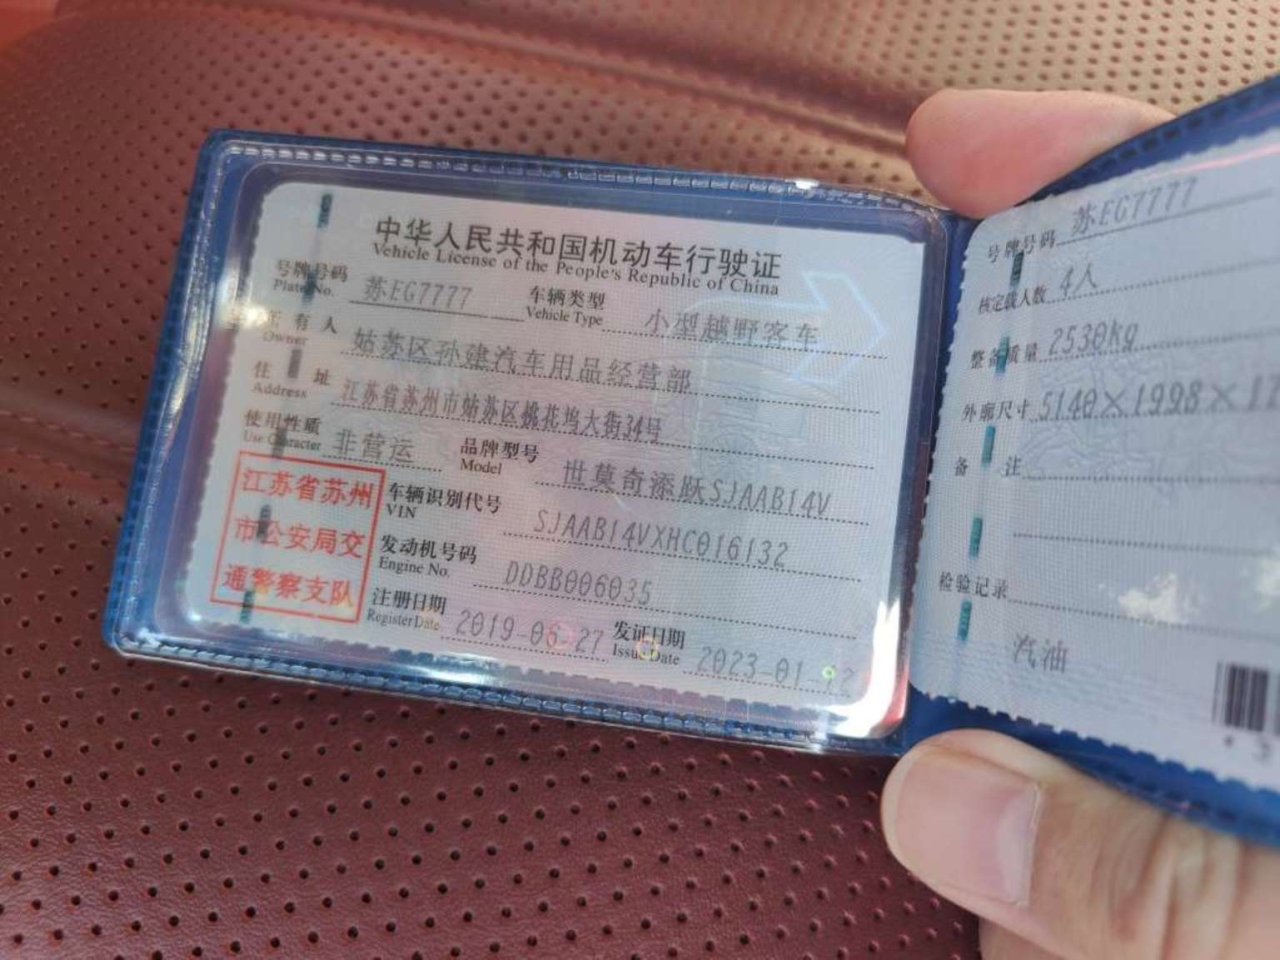 中华人民共和国机动车行驶证
Vehicle License of the People's Republic of China
号牌号码 苏EG7777 车辆类型 小型越野客车
Plate No. Vehicle Type
所有人 姑苏区孙建汽车用品经营部
Owner
住址 江苏省苏州市姑苏区桃花坞大街34号
Address
使用性质 非营运 品牌型号 世莫奇添跃SJAAB14V
Use Character Model
江苏省苏州
市公安局交
通警察支队
车辆识别代号 SJAAB14VXHC016132
VIN
发动机号码 DDBB006035
Engine No.
注册日期 2019-06-27 发证日期 2023-01-12
Register Date Issue Date
号牌号码 苏EG7777
核定载人数 4人
整备质量 2530kg
外廓尺寸 5140×1998×
备注
检验记录
汽油